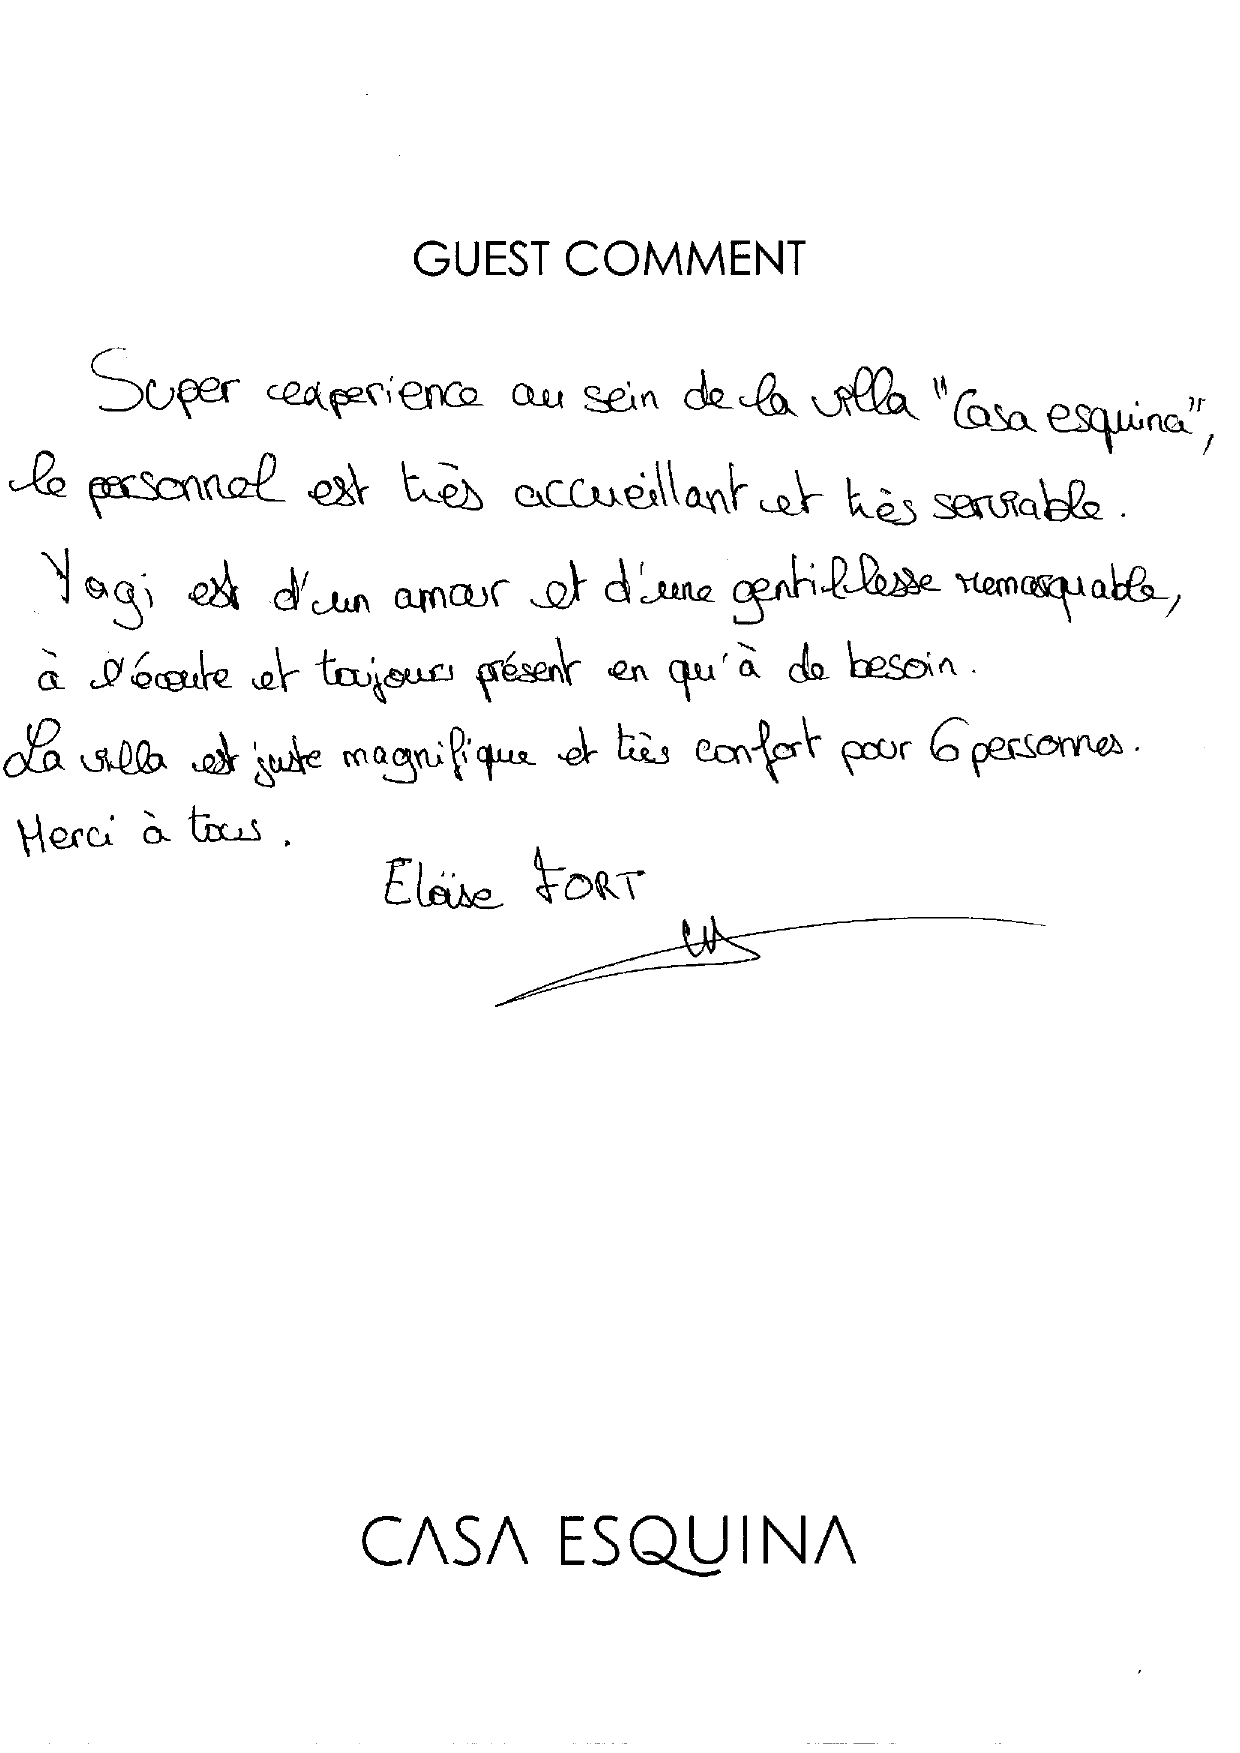 GUEST COMMENT
Super experience au sein de la villa "Casa esquina",
le personnel est très accueillant et très serviable.
Yagi est d'un amour et d'une gentillesse remarquable,
à l'écoute et toujours présent en qu'à de besoin.
La villa est juste magnifique et très confort pour 6 personnes.
Merci à tous.
Eloïse FORT
CASA ESQUINA